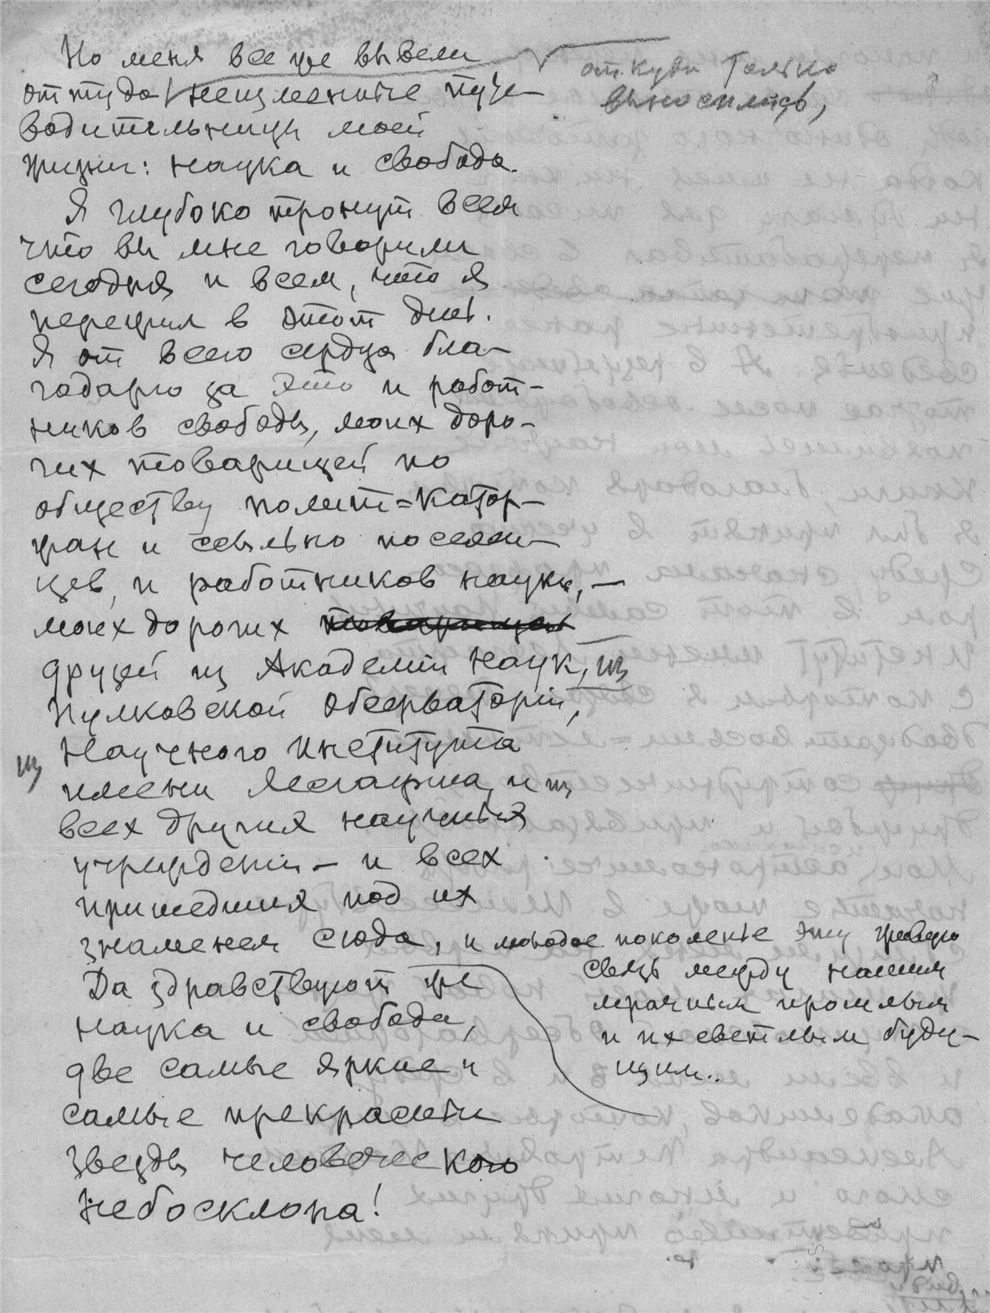 Но меня все же вывели
откуда только
выносились,
оттуда неизменные путе-
водительницы моей
жизни: наука и свобода.
Я глубоко тронут всем
что вы мне говорили
сегодня и всем, что я
пережил в этот день.
Я от всего сердца бла-
годарю за это и работ-
ников свободы, моих доро-
гих товарищей по
обществу полит=катор-
жан и ссыльно поселен-
цев, и работников науки, —
моих дорогих товарищей
друзей из Академии Наук, из
Пулковской Обсерватории,
из Научного Института
имени Лесгафта, и из
всех других научных
учреждений — и всех
пришедших под их
знаменем сюда, и молодое поколение эту живую
связь между нашим
мрачным прошлым
и их светлым буду-
щим..
Да здравствуют же
наука и свобода,
две самые яркие и
самые прекрасные
звезды человеческого
небосклона!